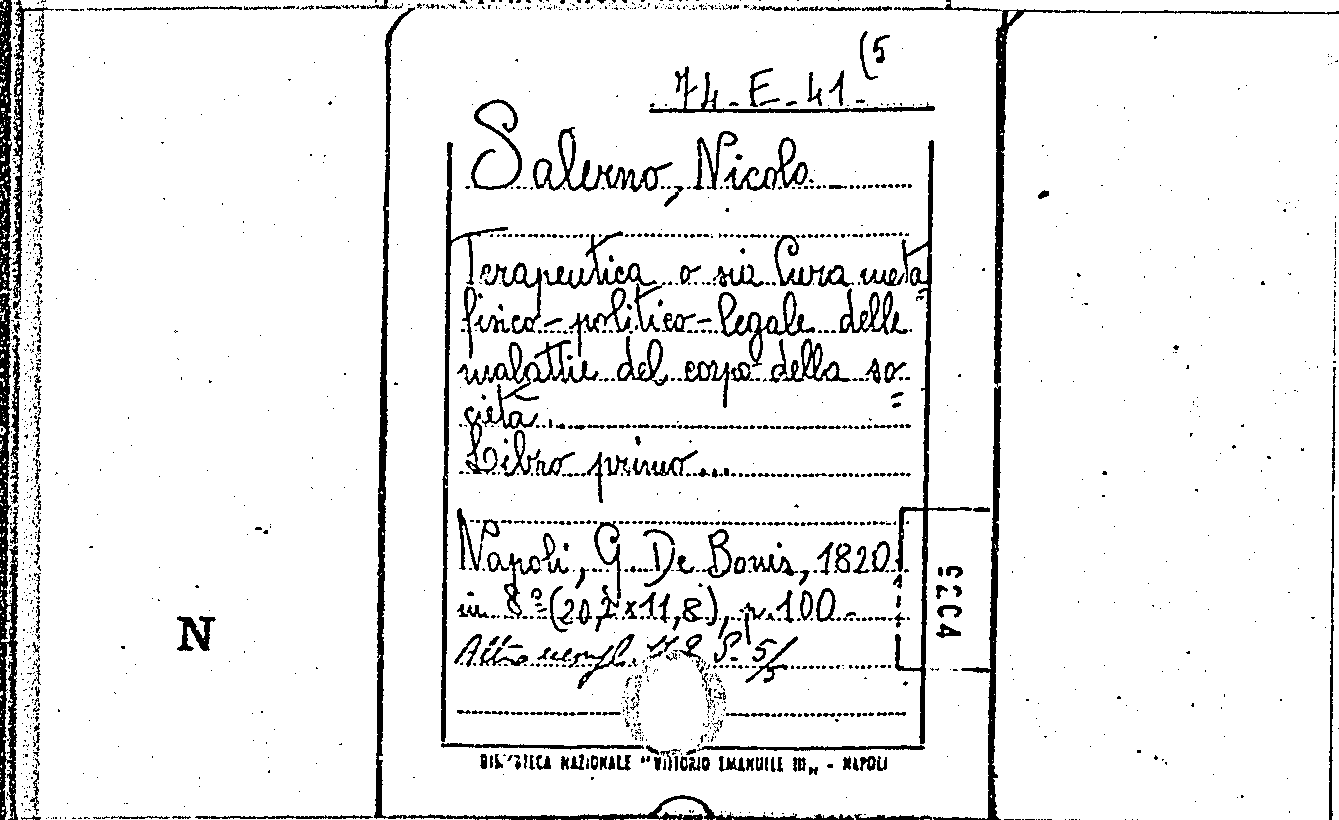 (5
74-E-41-
Salerno, Nicola
Terapeutica o sia Cura meta=
fisico-politico-legale delle
malattie del corpo della so=
cietà.
Libro primo...
Napoli, G. De Bonis, 1820
in 8º (20,2x11,8), p. 100-
Altro esempl. S. 5/5
5204
N
BIBLIOTECA NAZIONALE "VITTORIO EMANUELE III„ - NAPOLI